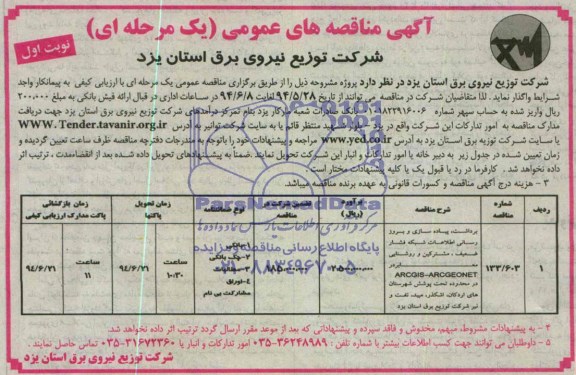 آگهی مناقصه های عمومی (یک مرحله ای)
نوبت اول
شرکت توزیع نیروی برق استان یزد
شرکت توزیع نیروی برق استان یزد در نظر دارد پروژه مشروحه ذیل را از طریق برگزاری مناقصه عمومی یک مرحله ای با ارزیابی کیفی به پیمانکار واجد
شرایط واگذار نماید. لذا متقاضیان شرکت در مناقصه می توانند از تاریخ ۹۴/۵/۲۸ لغایت ۹۴/۶/۸ در ساعات اداری در قبال ارائه فیش بانکی به مبلغ ۲۰۰،۰۰۰
ریال واریز شده به حساب سپهر شماره بانک صادرات شعبه مرکزی یزد بنام تمرکز درآمدهای شرکت توزیع نیروی برق استان یزد جهت دریافت
مدارک مناقصه به امور تدارکات این شرکت واقع در یزد مراجعه یا به سایت شرکت توانیر به آدرس WWW.Tender.tavanir.org.ir
یا سایت شرکت توزیع برق استان یزد به آدرس www.yed.co.ir مراجعه و پیشنهادات خود را باتوجه به مندرجات دفترچه مناقصه ظرف ساعت تعیین گردیده و
زمان تعیین شده در جدول زیر به دبیر خانه یا امور تدارکات و انبار این شرکت تحویل نمایند. ضمناً به پیشنهادهای تحویل داده شده بعد از انقضامدت، ترتیب اثر
داده نخواهد شد. کارفرما در رد یا قبول یک یا کلیه پیشنهادات مختار است.
۳ - هزینه درج آگهی مناقصه و کسورات قانونی به عهده برنده مناقصه میباشد.
ردیف شماره مناقصه شرح مناقصه برآورد (ریال) تضمین شرکت در مناقصه نوع ضمانتنامه زمان تحویل پاکتها زمان بازگشائی پاکت مدارک ارزیابی کیفی
۱ ۱۳۳/۶۰۳ برداشت، پیاده سازی و بروز رسانی اطلاعات شبکه فشار ضعیف، مشترکین و روشنایی معابر در ARCGIS-ARCGEONET در محدوده تحت پوشش شهرستان های اردکان، اشکذر، میبد، تفت و شرکت توزیع برق استان یزد
۲-چک بانکی
۴-اوراق مشارکت بی نام
ساعت ۱۰:۳۰ ۹۴/۶/۲۱
ساعت ۱۱ ۹۴/۶/۲۱
۴ - به پیشنهادات مشروط، مبهم، مخدوش و فاقد سپرده و پیشنهاداتی که بعد از موعد مقرر ارسال گردد ترتیب اثر داده نخواهد شد.
۵ - داوطلبان می توانند جهت کسب اطلاعات بیشتر با شماره تلفن : ۳۶۲۴۸۹۸۹-۰۳۵ امور تدارکات و انبار یا ۳۱۶۷۲۳۶۰-۰۳۵ تماس حاصل نمایند.
شرکت توزیع نیروی برق استان یزد
ParsNamadData
پایگاه اطلاع رسانی مناقصه و مزایده
۰۲۱-۸۸۳۴۹۶۷۰-۵